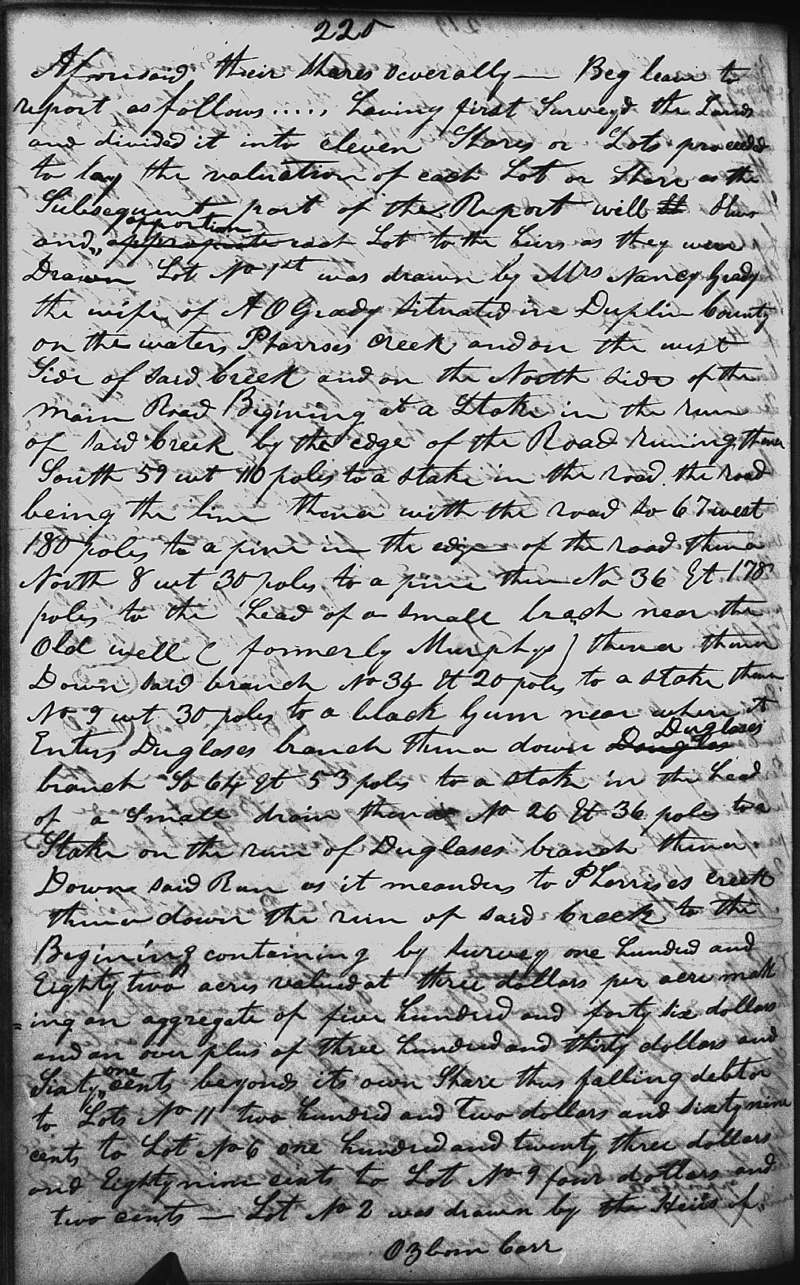 220
Aforesaid their shares severally — Beg leave to
report as follows ..... having first Surveyd the Lands
and divided it into eleven Shares or Lots proceeded
to lay the valuation of each Lot or share as the
Subsequent part of the Report will
apportion
and each Lot to the heirs as they were
Drawn Lot No 1st was drawn by Mrs Nancy Grady
the wife of A O Grady Situated in Duplin County
on the waters Pharrses creek and on the west
Side of said Creek and on the North side of the
main Road Begining at a Stake in the run
of said Creek by the edge of the Road runing thence
South 59 wt 110 poles to a stake in the road the road
being the line thence with the road so 67 west
180 poles to a pine in the edge of the road thence
North 8 wt 30 poles to a pine then No 36 Et 178
poles to the head of a small brach near the
Old well ( formerly Murphys ) thence thence
Down said branch No 34 Et 20 poles to a stake thence
No 9 wt 30 poles to a black Gum near where it
Duglases
Enters Duglases branch thence down Douglas
branch So 64 Et 53 poles to a stake in the head
of a Small drain thence No 26 Et 36 poles to a
Stake on the run of Duglases branch thence
Down said Run as it meanders to Pherrises creek
thence down the run of said Creek to the
Begining containing by survey one hundred and
Eighty two acres valued at three dollars per acre mak
=ing an aggregate of five hundred and forty six dollars
and an over plus of three hundred and thirty dollars and
one
Sixty cents beyond its own Share thus falling debtor
to Lots No 11 two hundred and two dollars and sixty nine
cents to Lot No 6 one hundred and twenty three dollars
and Eighty nine cents to Lot No 9 four dollars and
two cents — Lot No 2 was drawn by the Heirs of
Ozborn Carr